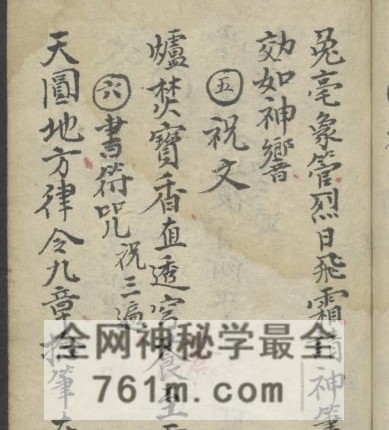 兎毫象管烈日飛霜
効如神響
㊄祝文
爐焚寳香直透
㊅書符咒祝三遍
天圓地方律令九章
全网神秘学最全
761m.com